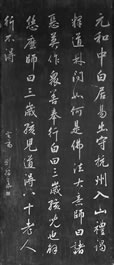 元和中白居易出守杭州入山禮謁
釋道林問如何是佛法大意師曰諸
惡莫作眾善奉行白曰三歲孩兒也解
恁麼師曰三歲孩兒道得八十老人
行不得